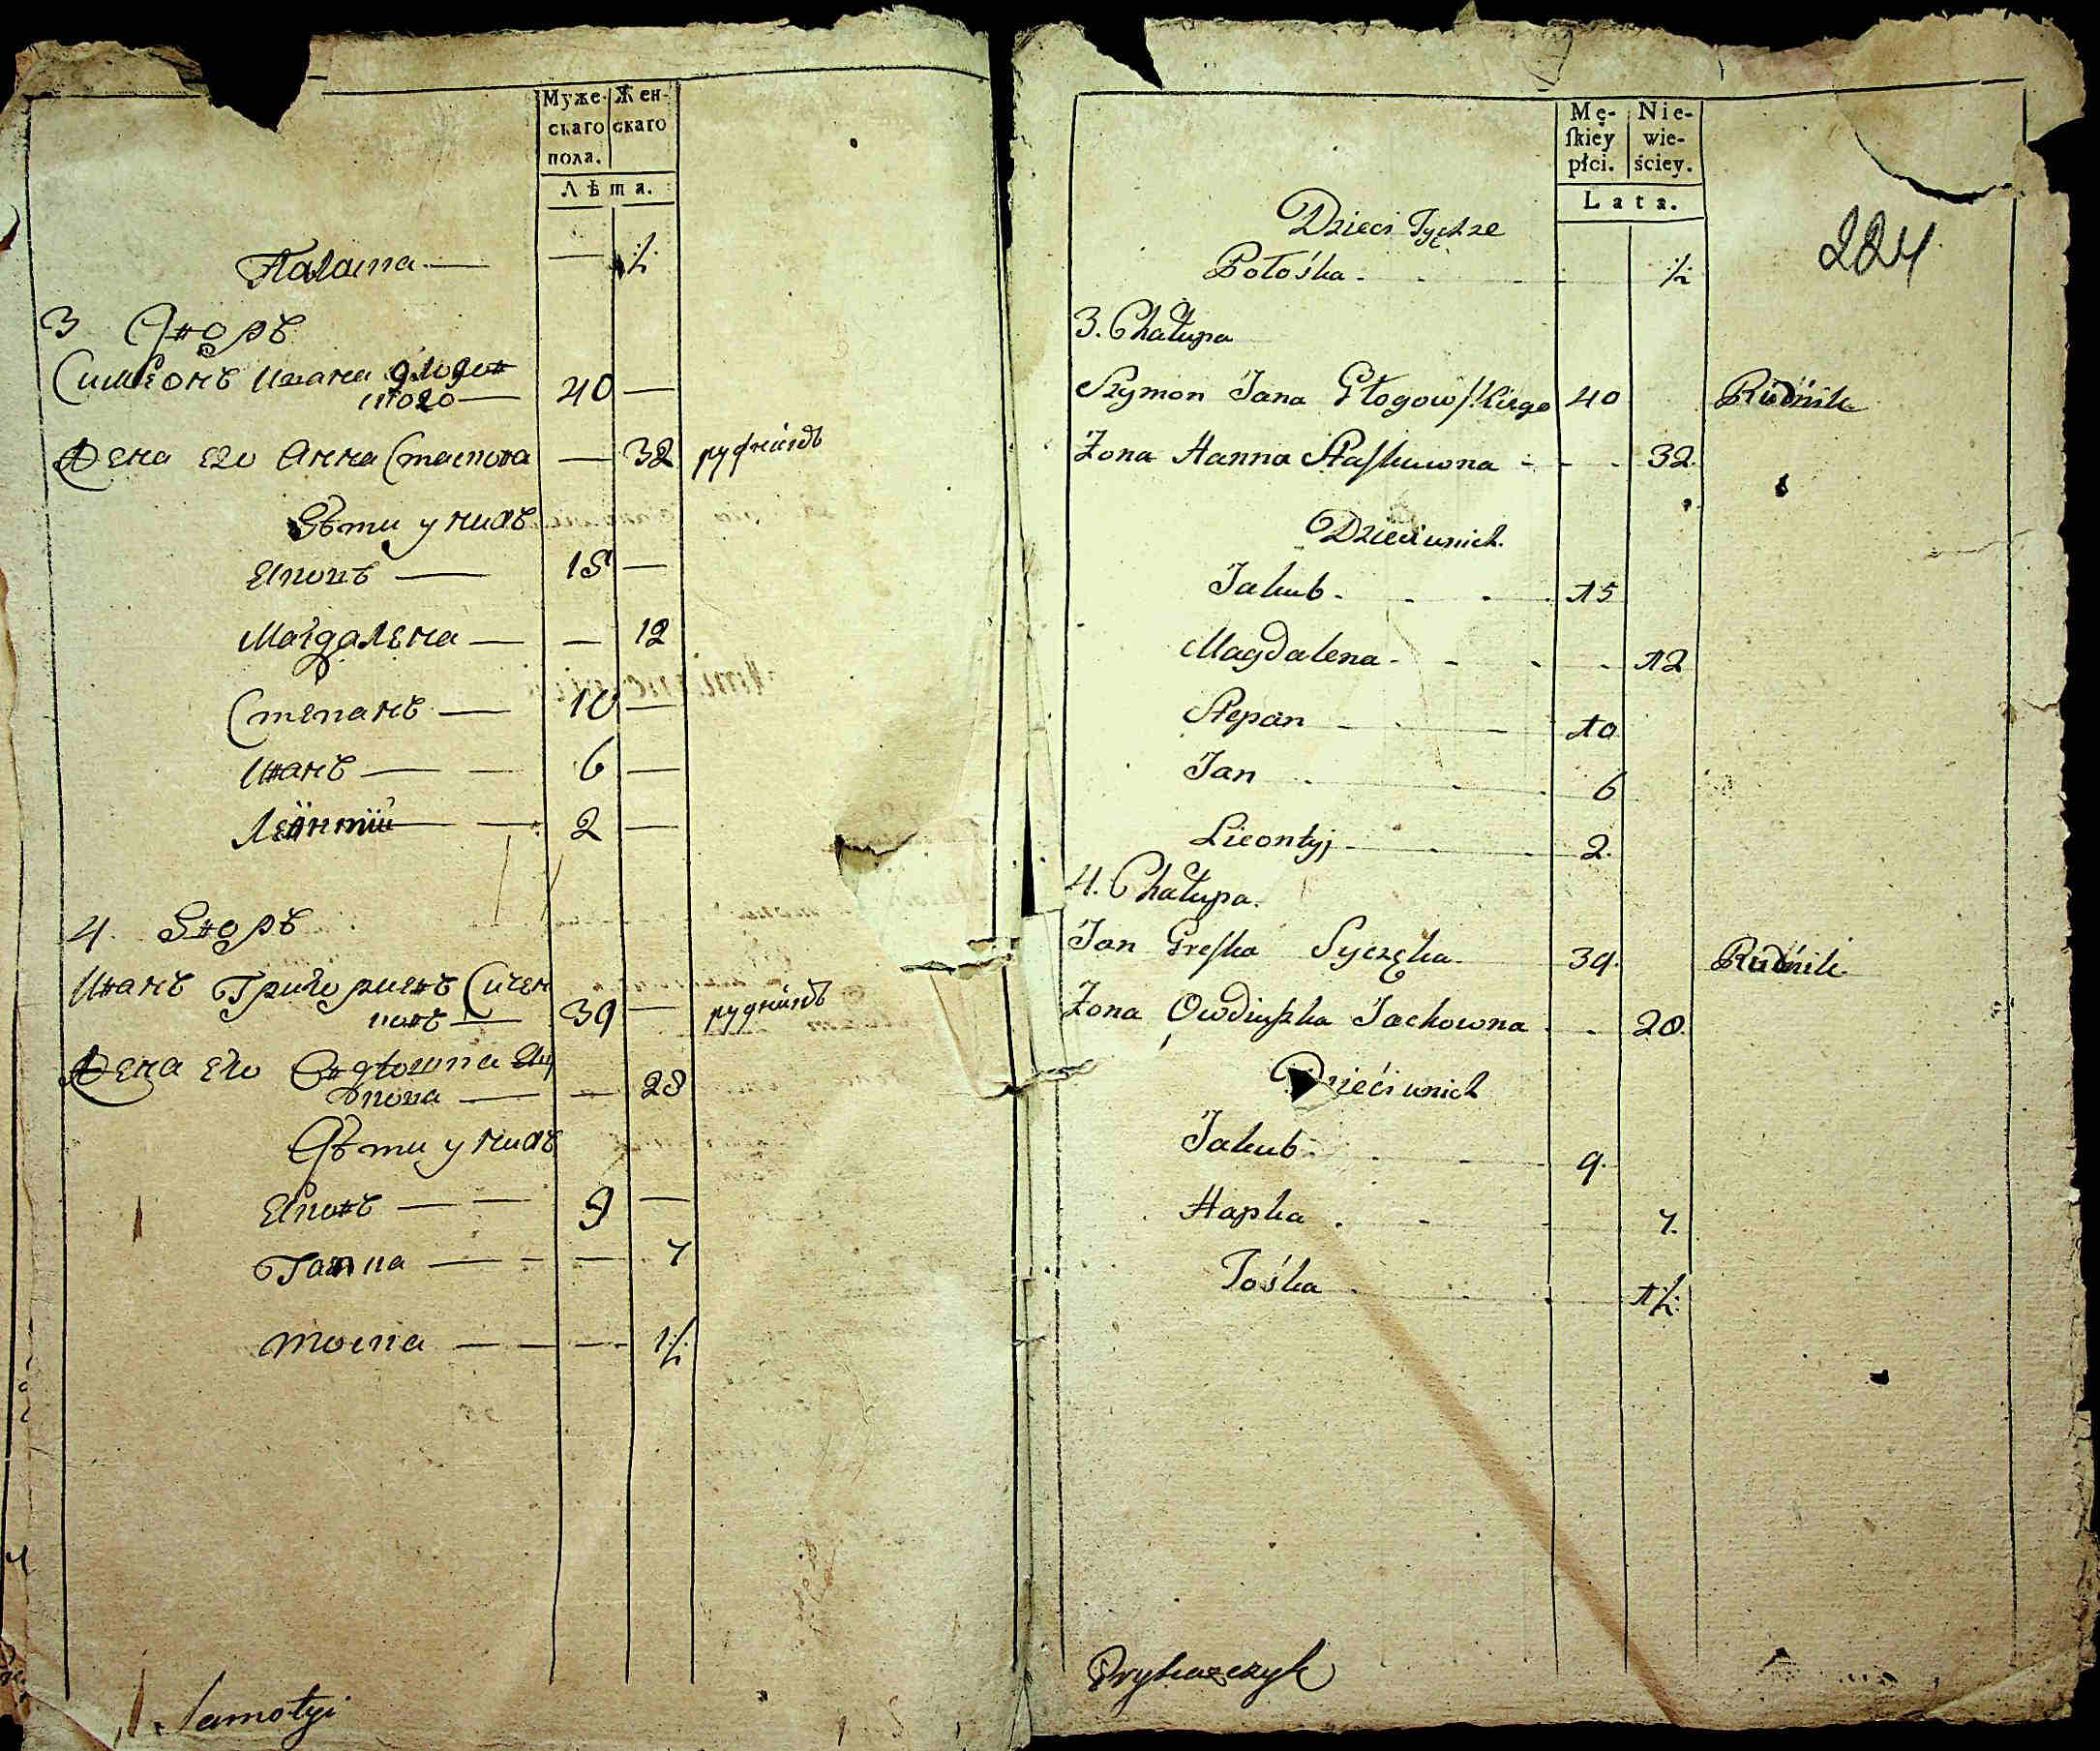 Муже-
скаго
пола.
Жен-
скаго
Лѣта.
Палаша — — ½
3 Дворъ
Симеонъ Ивана
40 —
Жена его Анна — 32 рудникъ
Дѣти у нихъ
15 —
Магдалена — — 12
Степанъ — 10 —
Иванъ — — 6 —
2 —
4. Дворъ
Иванъ Григориевъ Сичен
ковъ — 39 — рудникъ
Жена его
— — 28
Дѣти у нихъ
— — 9 —
Гапка — — — 7
тоска — — — 1½
Samotyi
Mę-
ſkiéy
płci.
Nie-
wie-
ściey.
Lata.
224
Dzieci Tychże
Połośka ½
3. Chałupa
Szymon Jana Głogowſkiego 40 Rudnik
Żona Hanna Staſkuwna 32.
Dzieci unich.
Jakub 15
Magdalena 12
Stepan 10
Jan 6
Lieontyj 2.
4. Chałupa.
Jan Greſka Syczęka 39. Rudnik
Żona Owdiuſzka Jackowna 28.
Dzieci unich
Jakub 9.
Hapka 7.
Tośka 1½
Prykazczyk